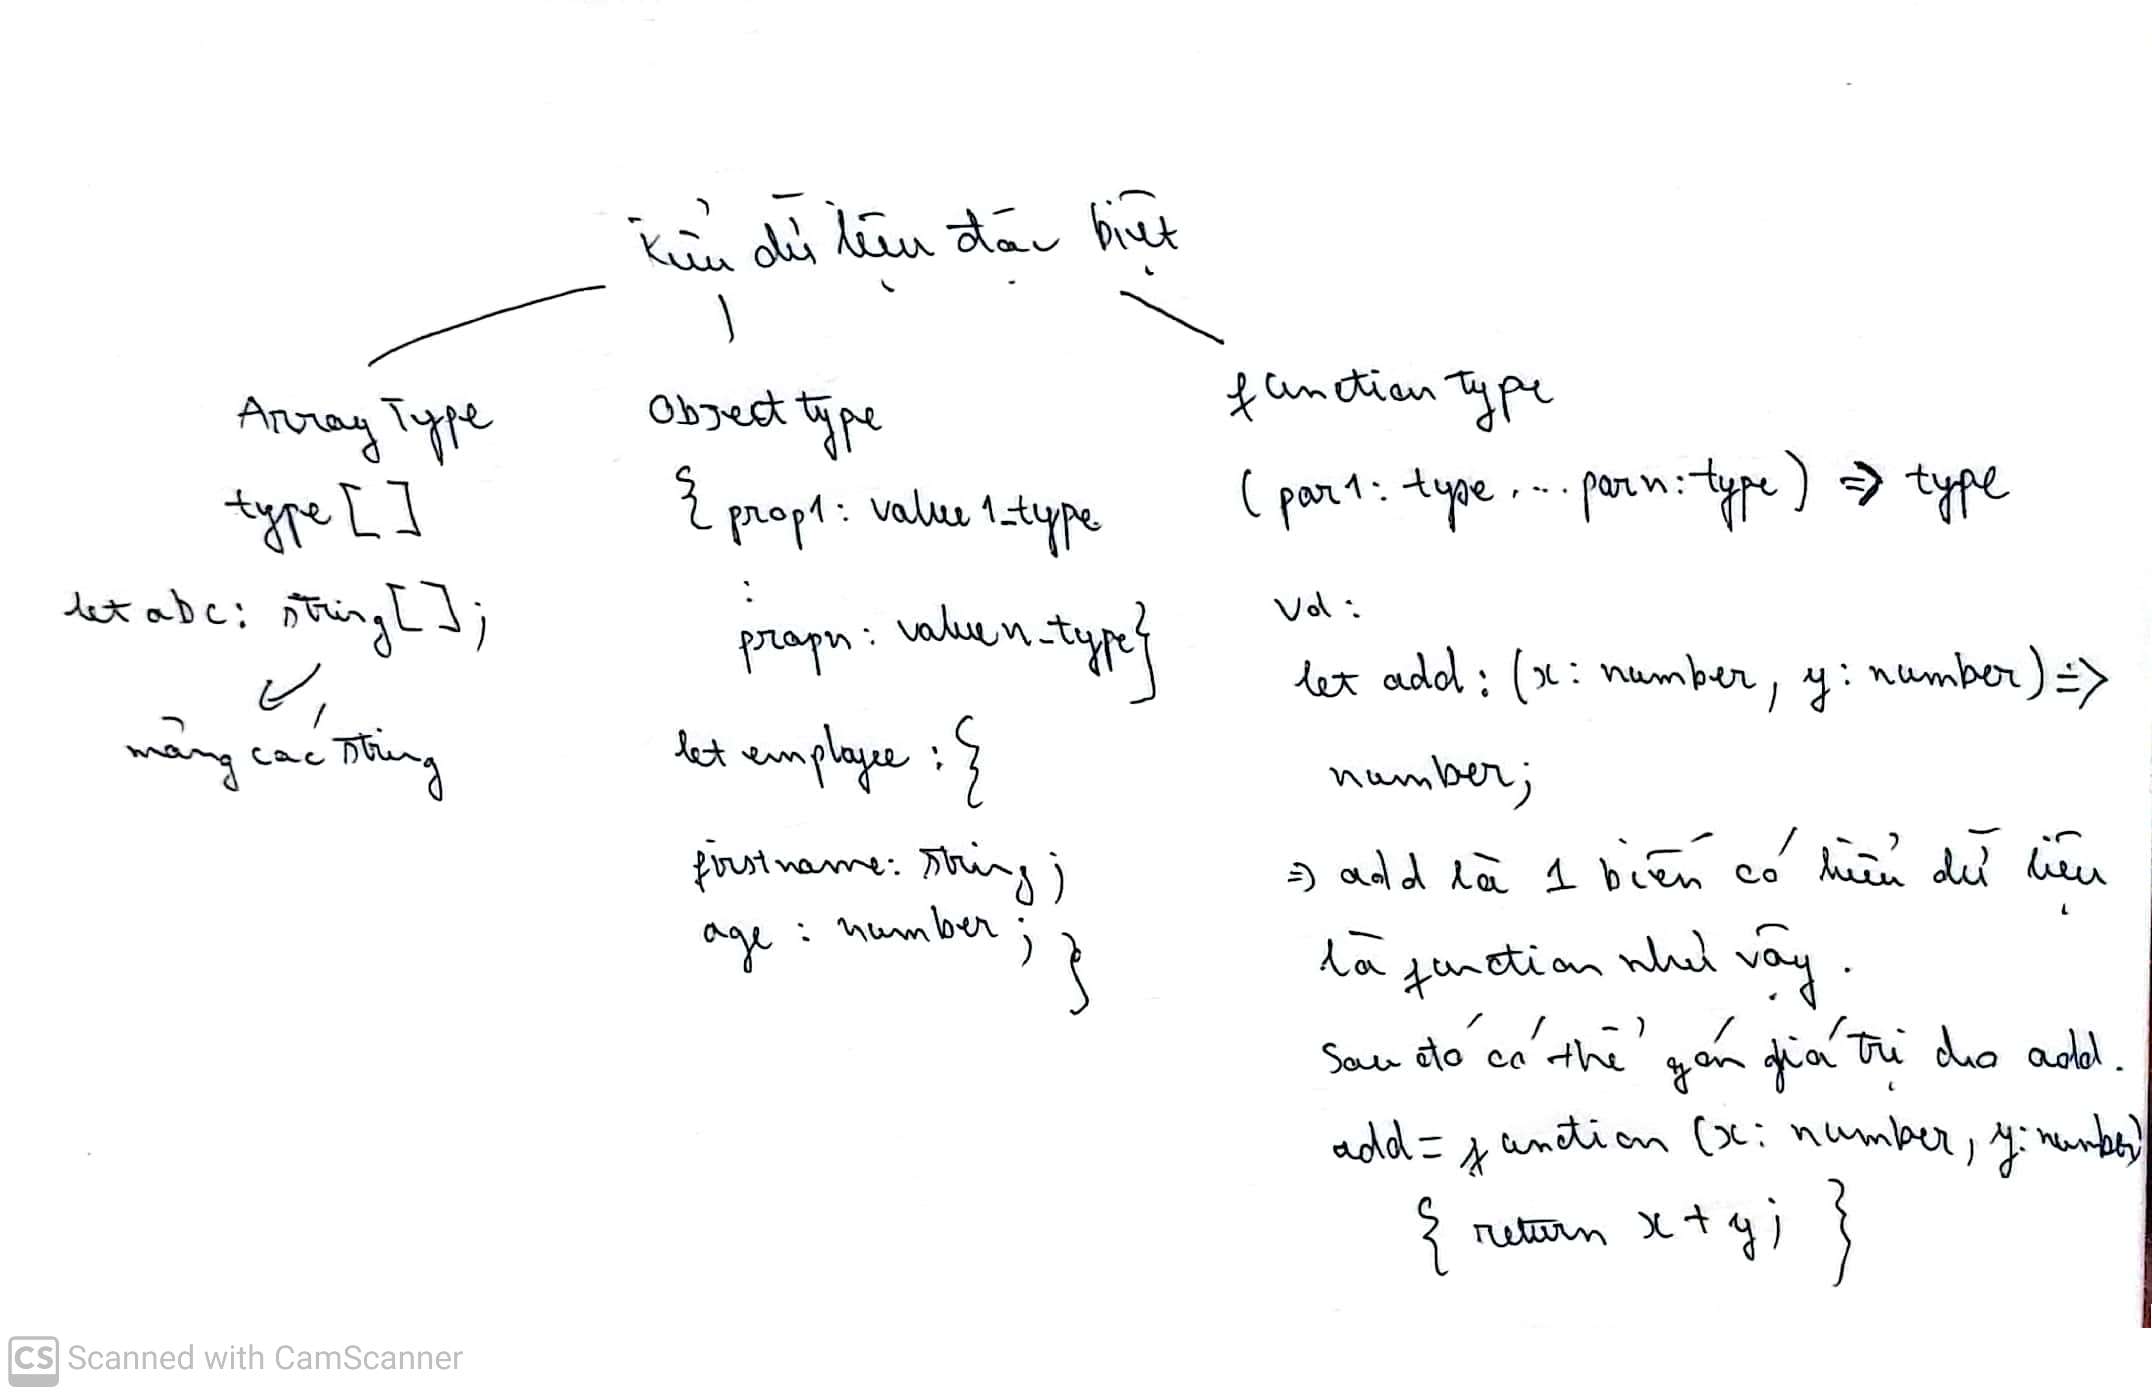 Kiểu dữ liệu đặc biệt
Array Type
type []
let abc: string[];
mảng các string
Object type
{ prop1: value1_type
:
propn: valuen_type}
let employee: {
firstname: string;
age: number; }
function type
(par1: type, ... parn: type) => type
Vd:
let add: (x: number, y: number) =>
number;
=> add là 1 biến có kiểu dữ liệu
là function như vậy.
Sau đó có thể gán giá trị cho add.
add = function (x: number, y: number)
{ return x + y; }
CS Scanned with CamScanner